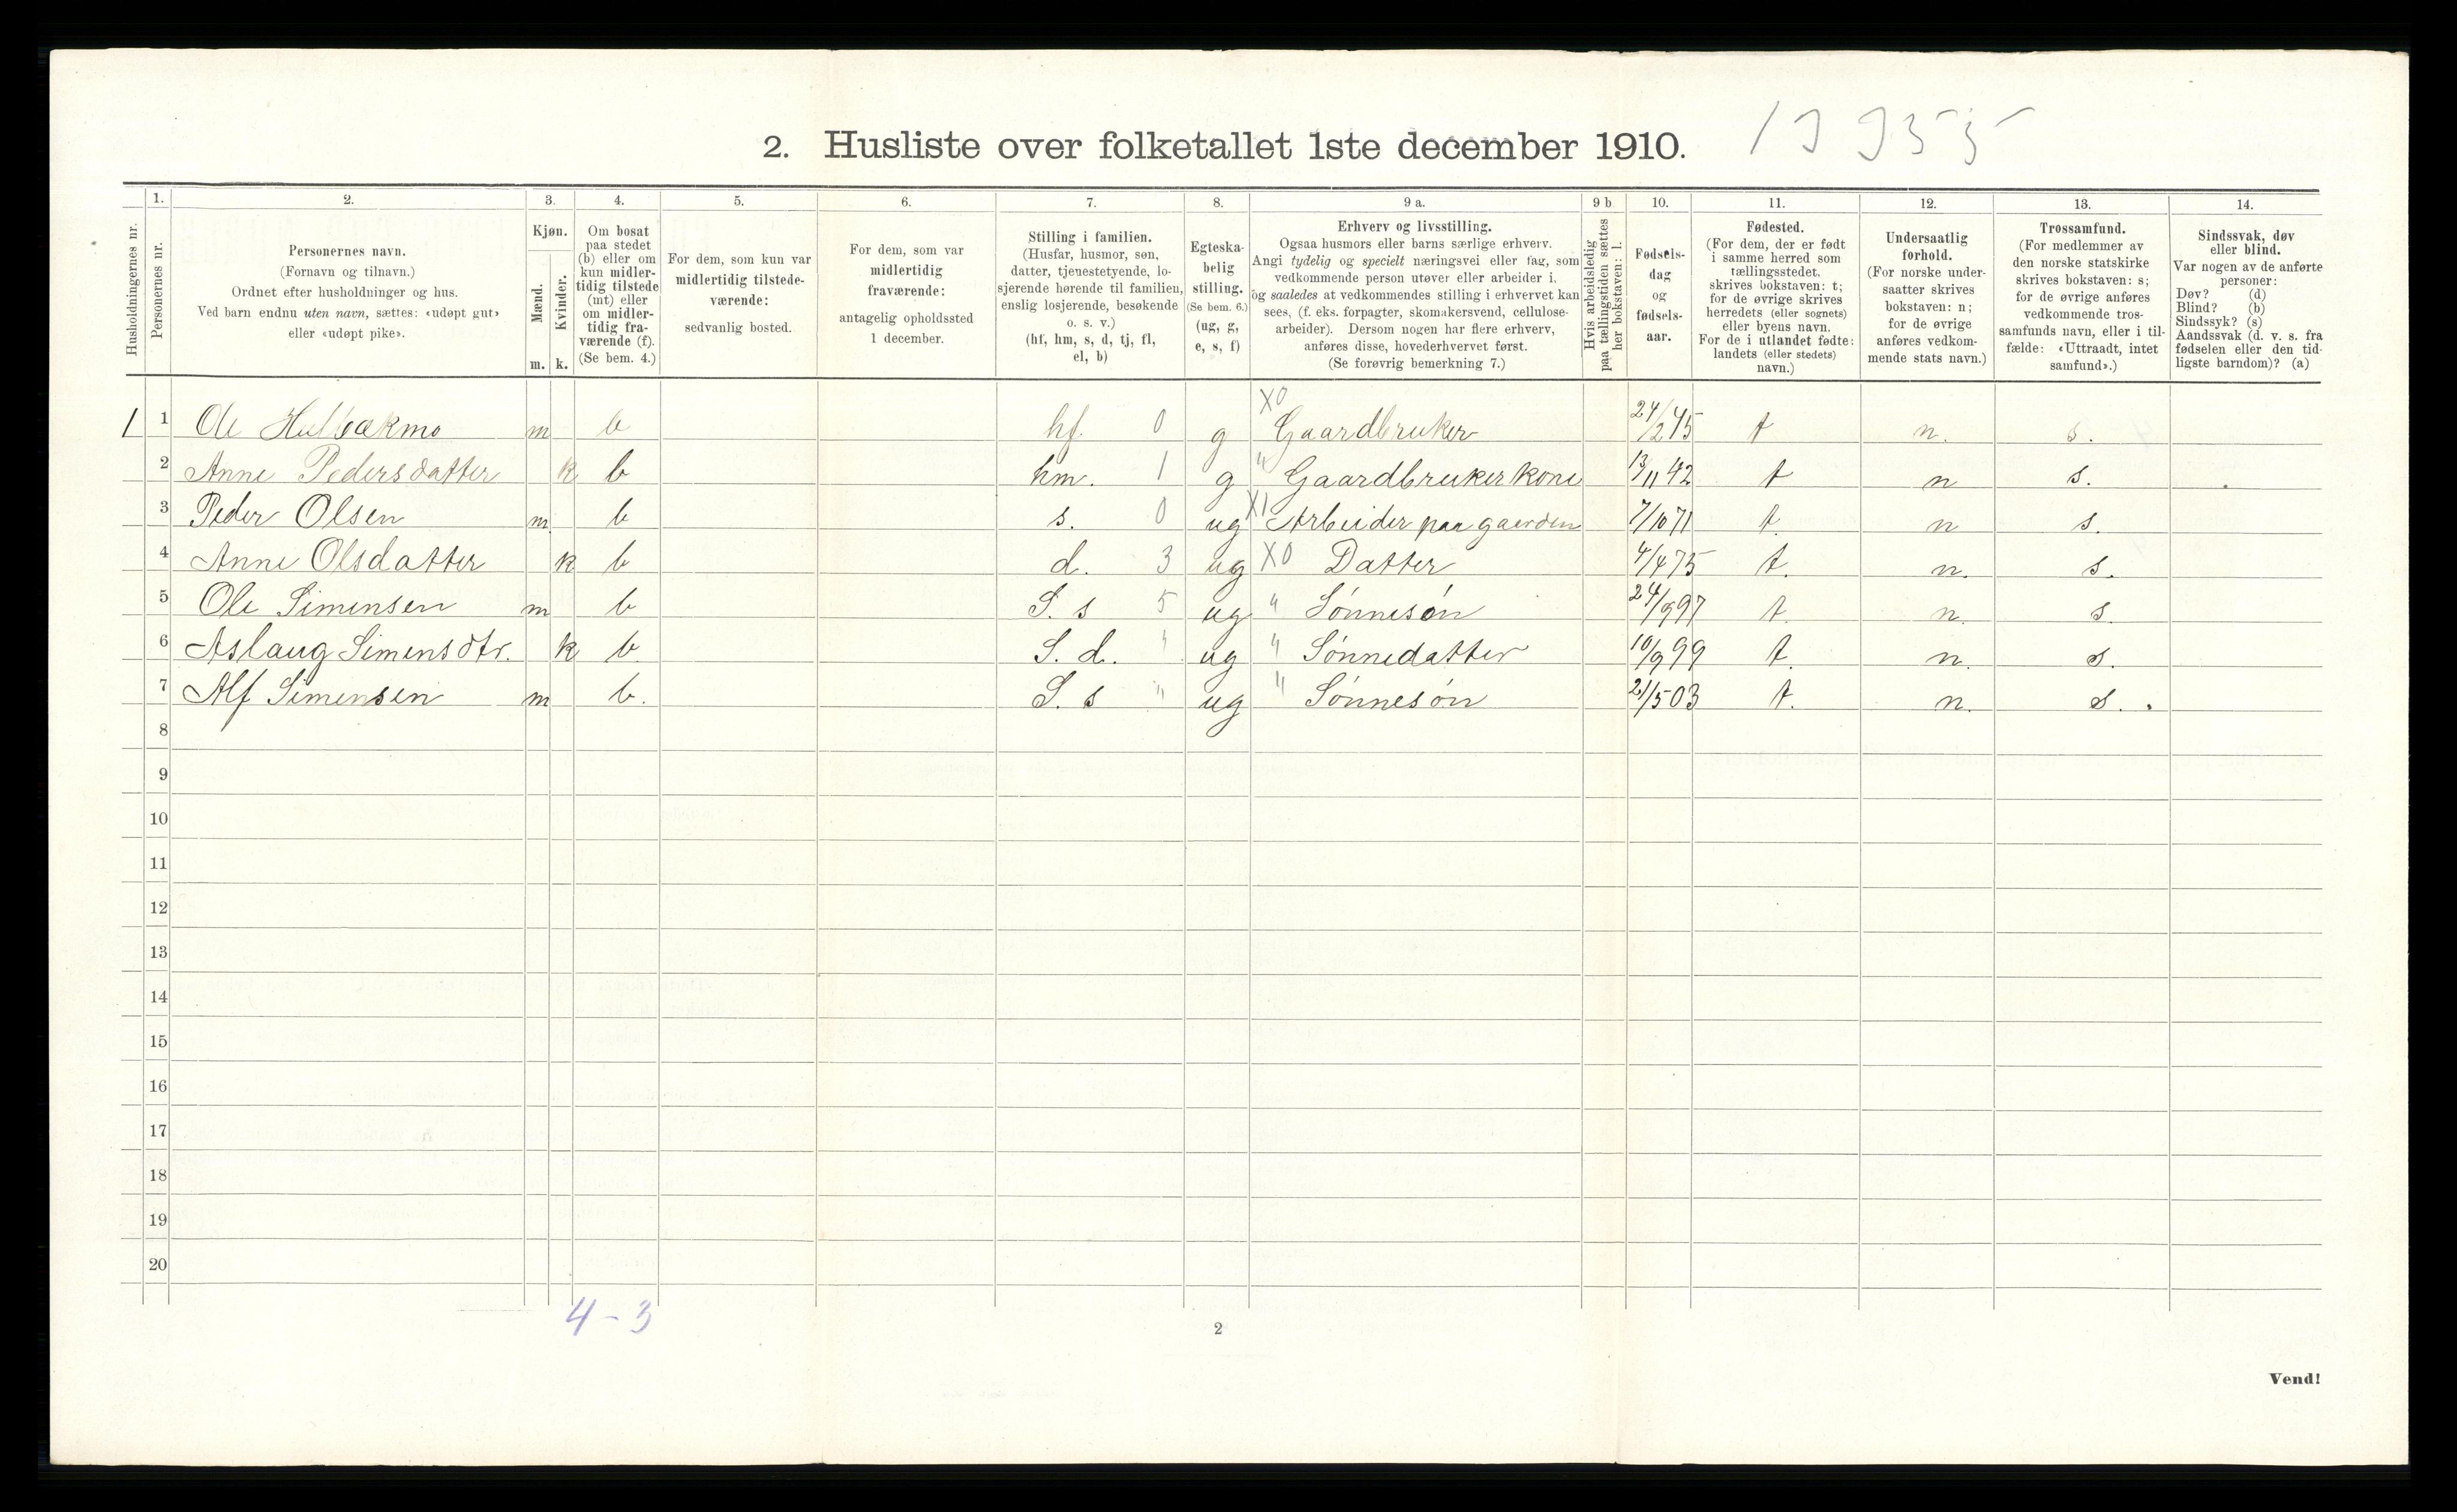 2. Husliste over folketallet 1ste december 1910.
Husholdningernes nr.
1.
Personernes nr.
2.
Personernes navn.
(Fornavn og tilnavn.)
Ordnet efter husholdninger og hus.
Ved barn endnu uten navn, sættes: «udøpt gut»
eller «udøpt pike».
3.
Kjøn.
Mænd.
m.
Kvinder.
k.
4.
Om bosat
paa stedet
(b) eller om
kun midler-
tidig tilstede
(mt) eller
om midler-
tidig fra-
værende (f).
(Se bem. 4.)
5.
For dem, som kun var
midlertidig tilstede-
værende:
sedvanlig bosted.
6.
For dem, som var
midlertidig
fraværende:
antagelig opholdssted
1 december.
7.
Stilling i familien.
(Husfar, husmor, søn,
datter, tjenestetyende, lo-
sjerende hørende til familien,
enslig losjerende, besøkende
o. s. v.)
(hf, hm, s, d, tj, fl,
el, b)
8.
Egteska-
belig
stilling.
(Se bem. 6.)
(ug, g,
e, s, f)
9 a.
Erhverv og livsstilling.
Ogsaa husmors eller barns særlige erhverv.
Angi tydelig og specielt næringsvei eller fag, som
vedkommende person utøver eller arbeider i,
og saaledes at vedkommendes stilling i erhvervet kan
sees, (f. eks. forpagter, skomakersvend, cellulose-
arbeider). Dersom nogen har flere erhverv,
anføres disse, hovederhvervet først.
(Se forøvrig bemerkning 7.)
9 b
Hvis arbeidsledig
paa tællingstiden sættes
her bokstaven: l.
10.
Fødsels-
dag
og
fødsels-
aar.
11.
Fødested.
(For dem, der er født
i samme herred som
tællingsstedet,
skrives bokstaven: t;
for de øvrige skrives
herredets (eller sognets)
eller byens navn.
For de i utlandet fødte:
landets (eller stedets)
navn.)
12.
Undersaatlig
forhold.
(For norske under-
saatter skrives
bokstaven: n;
for de øvrige
anføres vedkom-
mende stats navn.)
13.
Trossamfund.
(For medlemmer av
den norske statskirke
skrives bokstaven: s;
for de øvrige anføres
vedkommende tros-
samfunds navn, eller i til-
fælde: «Uttraadt, intet
samfund».)
14.
Sindssvak, døv
eller blind.
Var nogen av de anførte
personer:
Døv? (d)
Blind? (b)
Sindssyk? (s)
Aandssvak (d. v. s. fra
fødselen eller den tid-
ligste barndom)? (a)
1 1 Ole m b hf. 0 g X0 Gaardbruker 24/2 45 t n. s.
2 Anne Pedersdatter k b hm. 1 g " Gaardbrukerkone 13/11 42 t n s.
3 Peder Olsen m b s. 0 ug X1 Arbeider paa gaarden 7/10 71 t. n s.
4 Anne Olsdatter k b d. 3 ug X0 Datter 4/4 75 t. n. s.
5 Ole Simensen m b S. s 5 ug " Sønnesøn 24/9 97 t. n. s.
6 Aslaug Simensdtr. k b. S. d. " ug " Sønnedatter 10/9 99 t. n. s.
7 Alf Simensen m b. S. s " ug " Sønnesøn 21/5 03 t. n. s.
8
9
10
11
12
13
14
15
16
17
18
19
20
4 - 3
2
Vend!